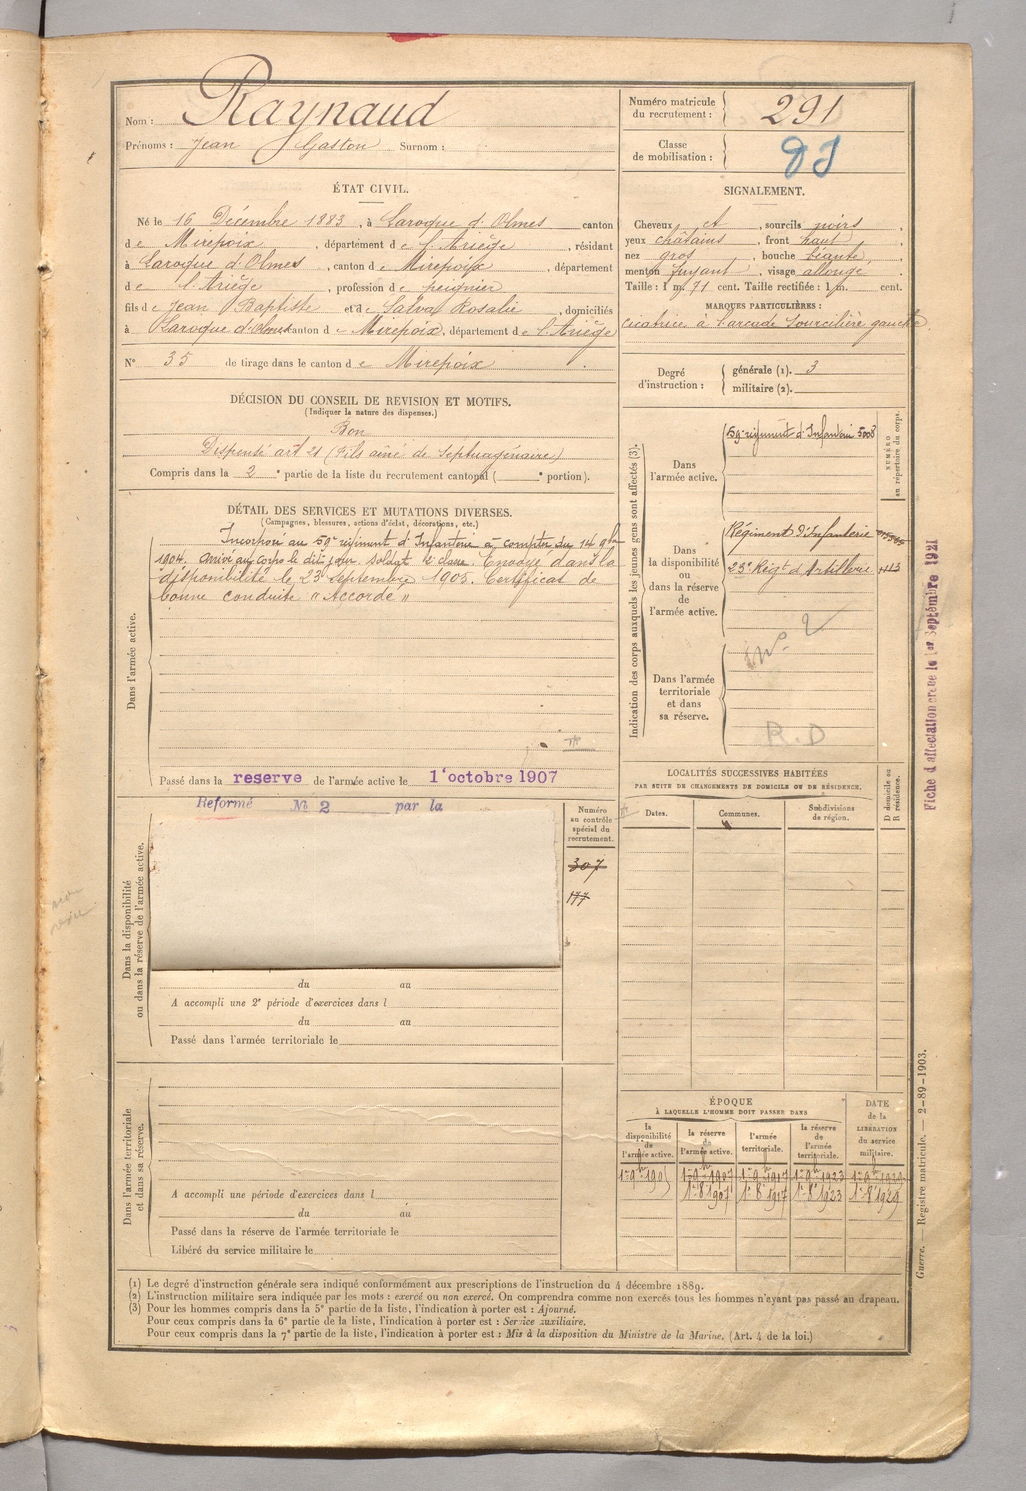 Nom : Raynaud
Prénoms : Jean Gaston Surnom :
Numéro matricule du recrutement : 291
Classe de mobilisation :
ÉTAT CIVIL.
Né le 16 Décembre 1883, à Laroque d'Olmes canton
de Mirepoix, département de l'Ariège, résidant
à Laroque d'Olmes, canton de Mirepoix, département
de l'Ariège, profession de peignier
fils de Jean Baptiste et de Salva Rosalie, domiciliés
à Laroque d'Olmes canton de Mirepoix, département de l'Ariège
N° 35 de tirage dans le canton de Mirepoix
SIGNALEMENT.
Cheveux et, sourcils noirs,
yeux châtains, front haut,
nez gros, bouche béante,
menton fuyant, visage allongé.
Taille : 1 m. 71 cent. Taille rectifiée : 1 m. cent.
MARQUES PARTICULIÈRES :
cicatrice à l'arcade sourcilière gauche
Degré d'instruction : générale (1). 3
militaire (2).
DÉCISION DU CONSEIL DE REVISION ET MOTIFS.
(Indiquer la nature des dispenses.)
Bon
Dispensé art 21 (Fils aîné de Septuagénaire)
Compris dans la 2e partie de la liste du recrutement cantonal ( e portion).
DÉTAIL DES SERVICES ET MUTATIONS DIVERSES.
(Campagnes, blessures, actions d'éclat, décorations, etc.)
Dans l'armée active.
Incorporé au 59e régiment d'Infanterie à compter du 14 9bre
1904. Arrivé au corps le dit jour. soldat 2e classe. Envoyé dans la
disponibilité le 23 septembre 1905. Certificat de
bonne conduite "Accordé"
Passé dans la reserve de l'armée active le 1er octobre 1907
Indication des corps auxquels les jeunes gens sont affectés (3).
NUMÉRO au répertoire du corps.
Dans l'armée active.
59e régiment d'Infanterie 5008
Dans la disponibilité ou dans la réserve de l'armée active.
Régiment d'Infanterie
23e Régt d'Artillerie
N° 2
Dans l'armée territoriale et dans sa réserve.
R.D
Fiche d'affectation créée le 1er Septembre 1921
Dans la disponibilité ou dans la réserve de l'armée active.
Reformé N° 2 par la
Numéro au contrôle spécial du recrutement.
307
177
du au
A accompli une 2e période d'exercices dans l
du au
Passé dans l'armée territoriale le
LOCALITÉS SUCCESSIVES HABITÉES
PAR SUITE DE CHANGEMENTS DE DOMICILE OU DE RÉSIDENCE.
Dates. Communes. Subdivisions de région. D domicile ou R résidence.
Dans l'armée territoriale et dans sa réserve.
A accompli une période d'exercices dans l
du au
Passé dans la réserve de l'armée territoriale le
Libéré du service militaire le
ÉPOQUE
À LAQUELLE L'HOMME DOIT PASSER DANS
la disponibilité de l'armée active.
la réserve de l'armée active.
l'armée territoriale.
la réserve de l'armée territoriale.
DATE de la LIBÉRATION du service militaire.
1er 8 1907 1er 8 1917 1er 8 1923 1er 8 1929
(1) Le degré d'instruction générale sera indiqué conformément aux prescriptions de l'instruction du 4 décembre 1889.
(2) L'instruction militaire sera indiquée par les mots : exercé ou non exercé. On comprendra comme non exercés tous les hommes n'ayant pas passé au drapeau.
(3) Pour les hommes compris dans la 5e partie de la liste, l'indication à porter est : Ajourné.
Pour ceux compris dans la 6e partie de la liste, l'indication à porter est : Service auxiliaire.
Pour ceux compris dans la 7e partie de la liste, l'indication à porter est : Mis à la disposition du Ministre de la Marine. (Art. 4 de la loi.)
Guerre. — Registre matricule. — 2-89-1903.